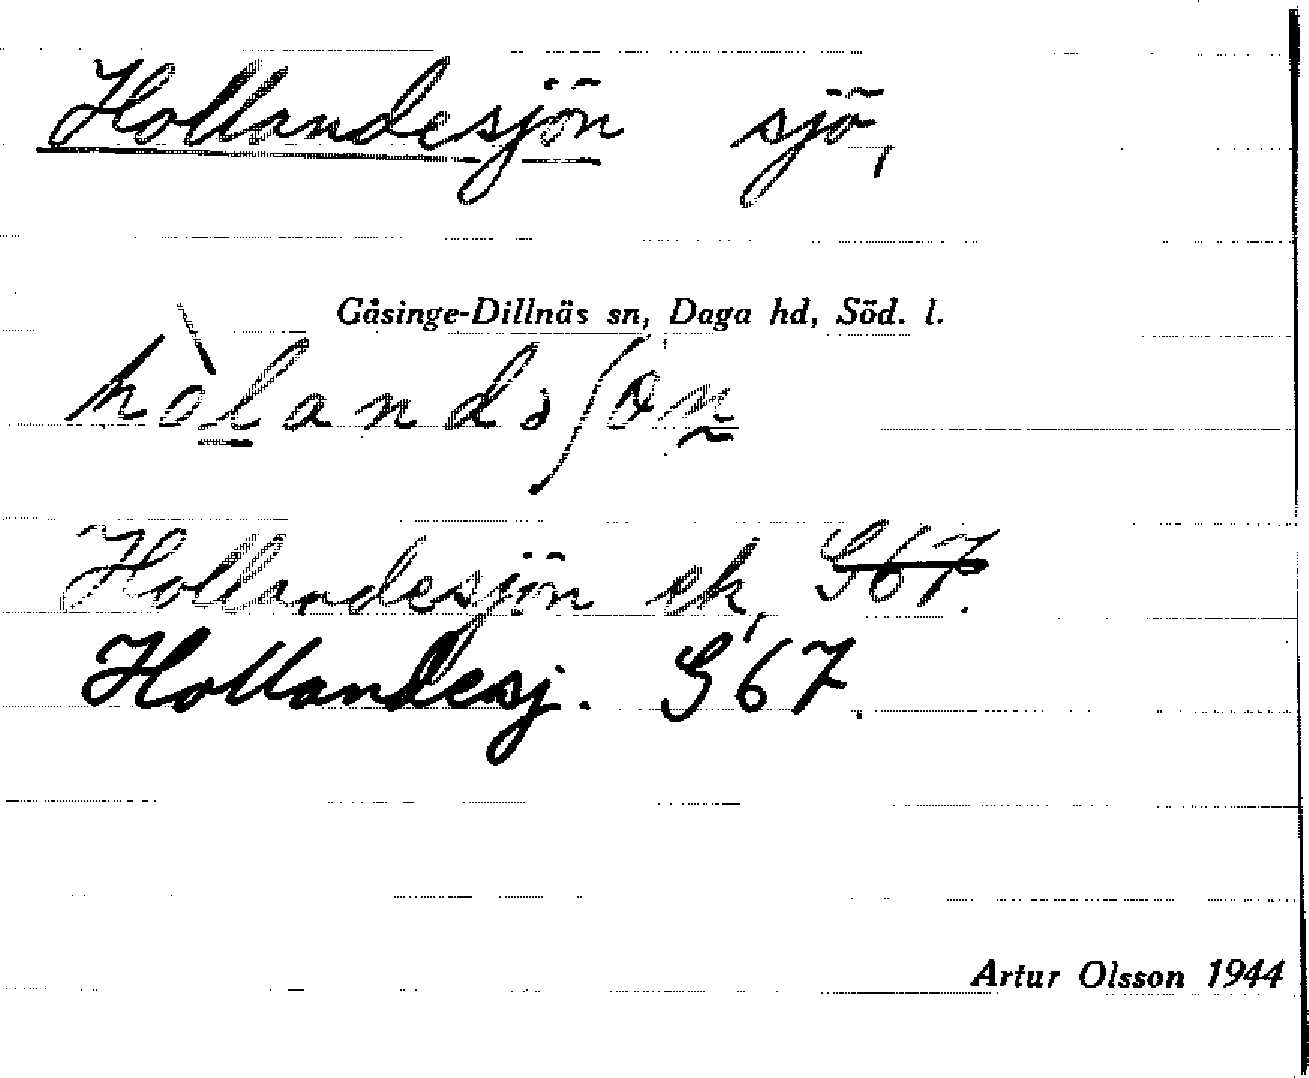 Hollandesjön sjö,
Gåsinge-Dillnäs sn, Daga hd, Söd. l.
Hollandesjön ek, G67.
Hollandesj. G67.
Artur Olsson 1944